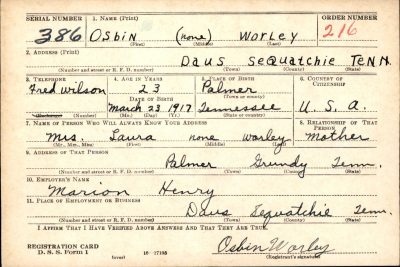 SERIAL NUMBER 1. NAME (Print) ORDER NUMBER
386 Osbin (none) Worley 216
(First) (Middle) (Last)
2. ADDRESS (Print)
Daus Sequatchie Tenn
(Number and street or R. F. D. number) (Town) (County) (State)
3. TELEPHONE 4. AGE IN YEARS 5. PLACE OF BIRTH 6. COUNTRY OF CITIZENSHIP
Fred Wilson 23 Palmer
DATE OF BIRTH (Town or county)
March 23 1917 Tennessee U. S. A.
(Exchange) (Number) (Mo.) (Day) (Yr.) (State or country)
7. NAME OF PERSON WHO WILL ALWAYS KNOW YOUR ADDRESS 8. RELATIONSHIP OF THAT PERSON
Mrs. Laura none Worley Mother
(Mr., Mrs., Miss) (First) (Middle) (Last)
9. ADDRESS OF THAT PERSON
Palmer Grundy Tenn.
(Number and street or R. F. D. number) (Town) (County) (State)
10. EMPLOYER'S NAME
Marion Henry
11. PLACE OF EMPLOYMENT OR BUSINESS
Daus Sequatchie Tenn.
(Number and street or R. F. D. number) (Town) (County) (State)
I AFFIRM THAT I HAVE VERIFIED ABOVE ANSWERS AND THAT THEY ARE TRUE.
Osbin Worley
REGISTRATION CARD
D. S. S. Form 1 (over) 16—17105 (Registrant's signature)